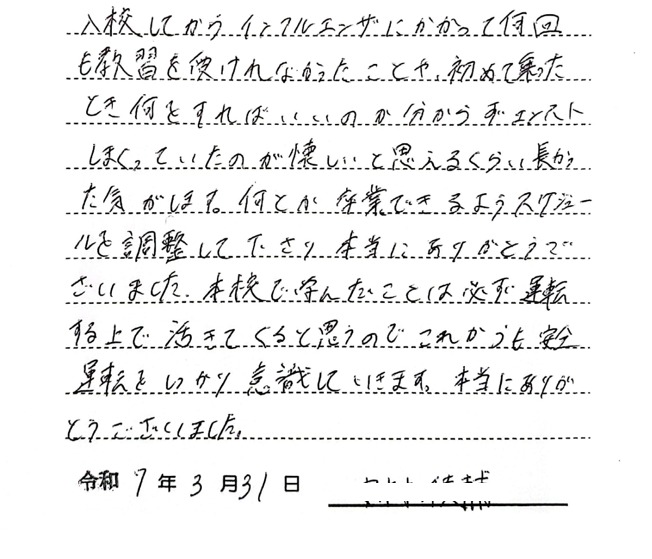 入校してからインフルエンザにかかって何回
も教習を受けれなかったことや、初めて乗った
とき何をすればいいのか分からずエンスト
しまくっていたのが懐しいと思えるくらい長かっ
た気がします。何とか卒業できるようスケジュー
ルを調整して下さり本当にありがとうで
ざいました。本校で学んだことは必ず運転
する上で活きてくると思うのでこれからも安全
運転をしっかり意識していきます。本当にありが
とうございました。
令和 7 年 3 月 31 日